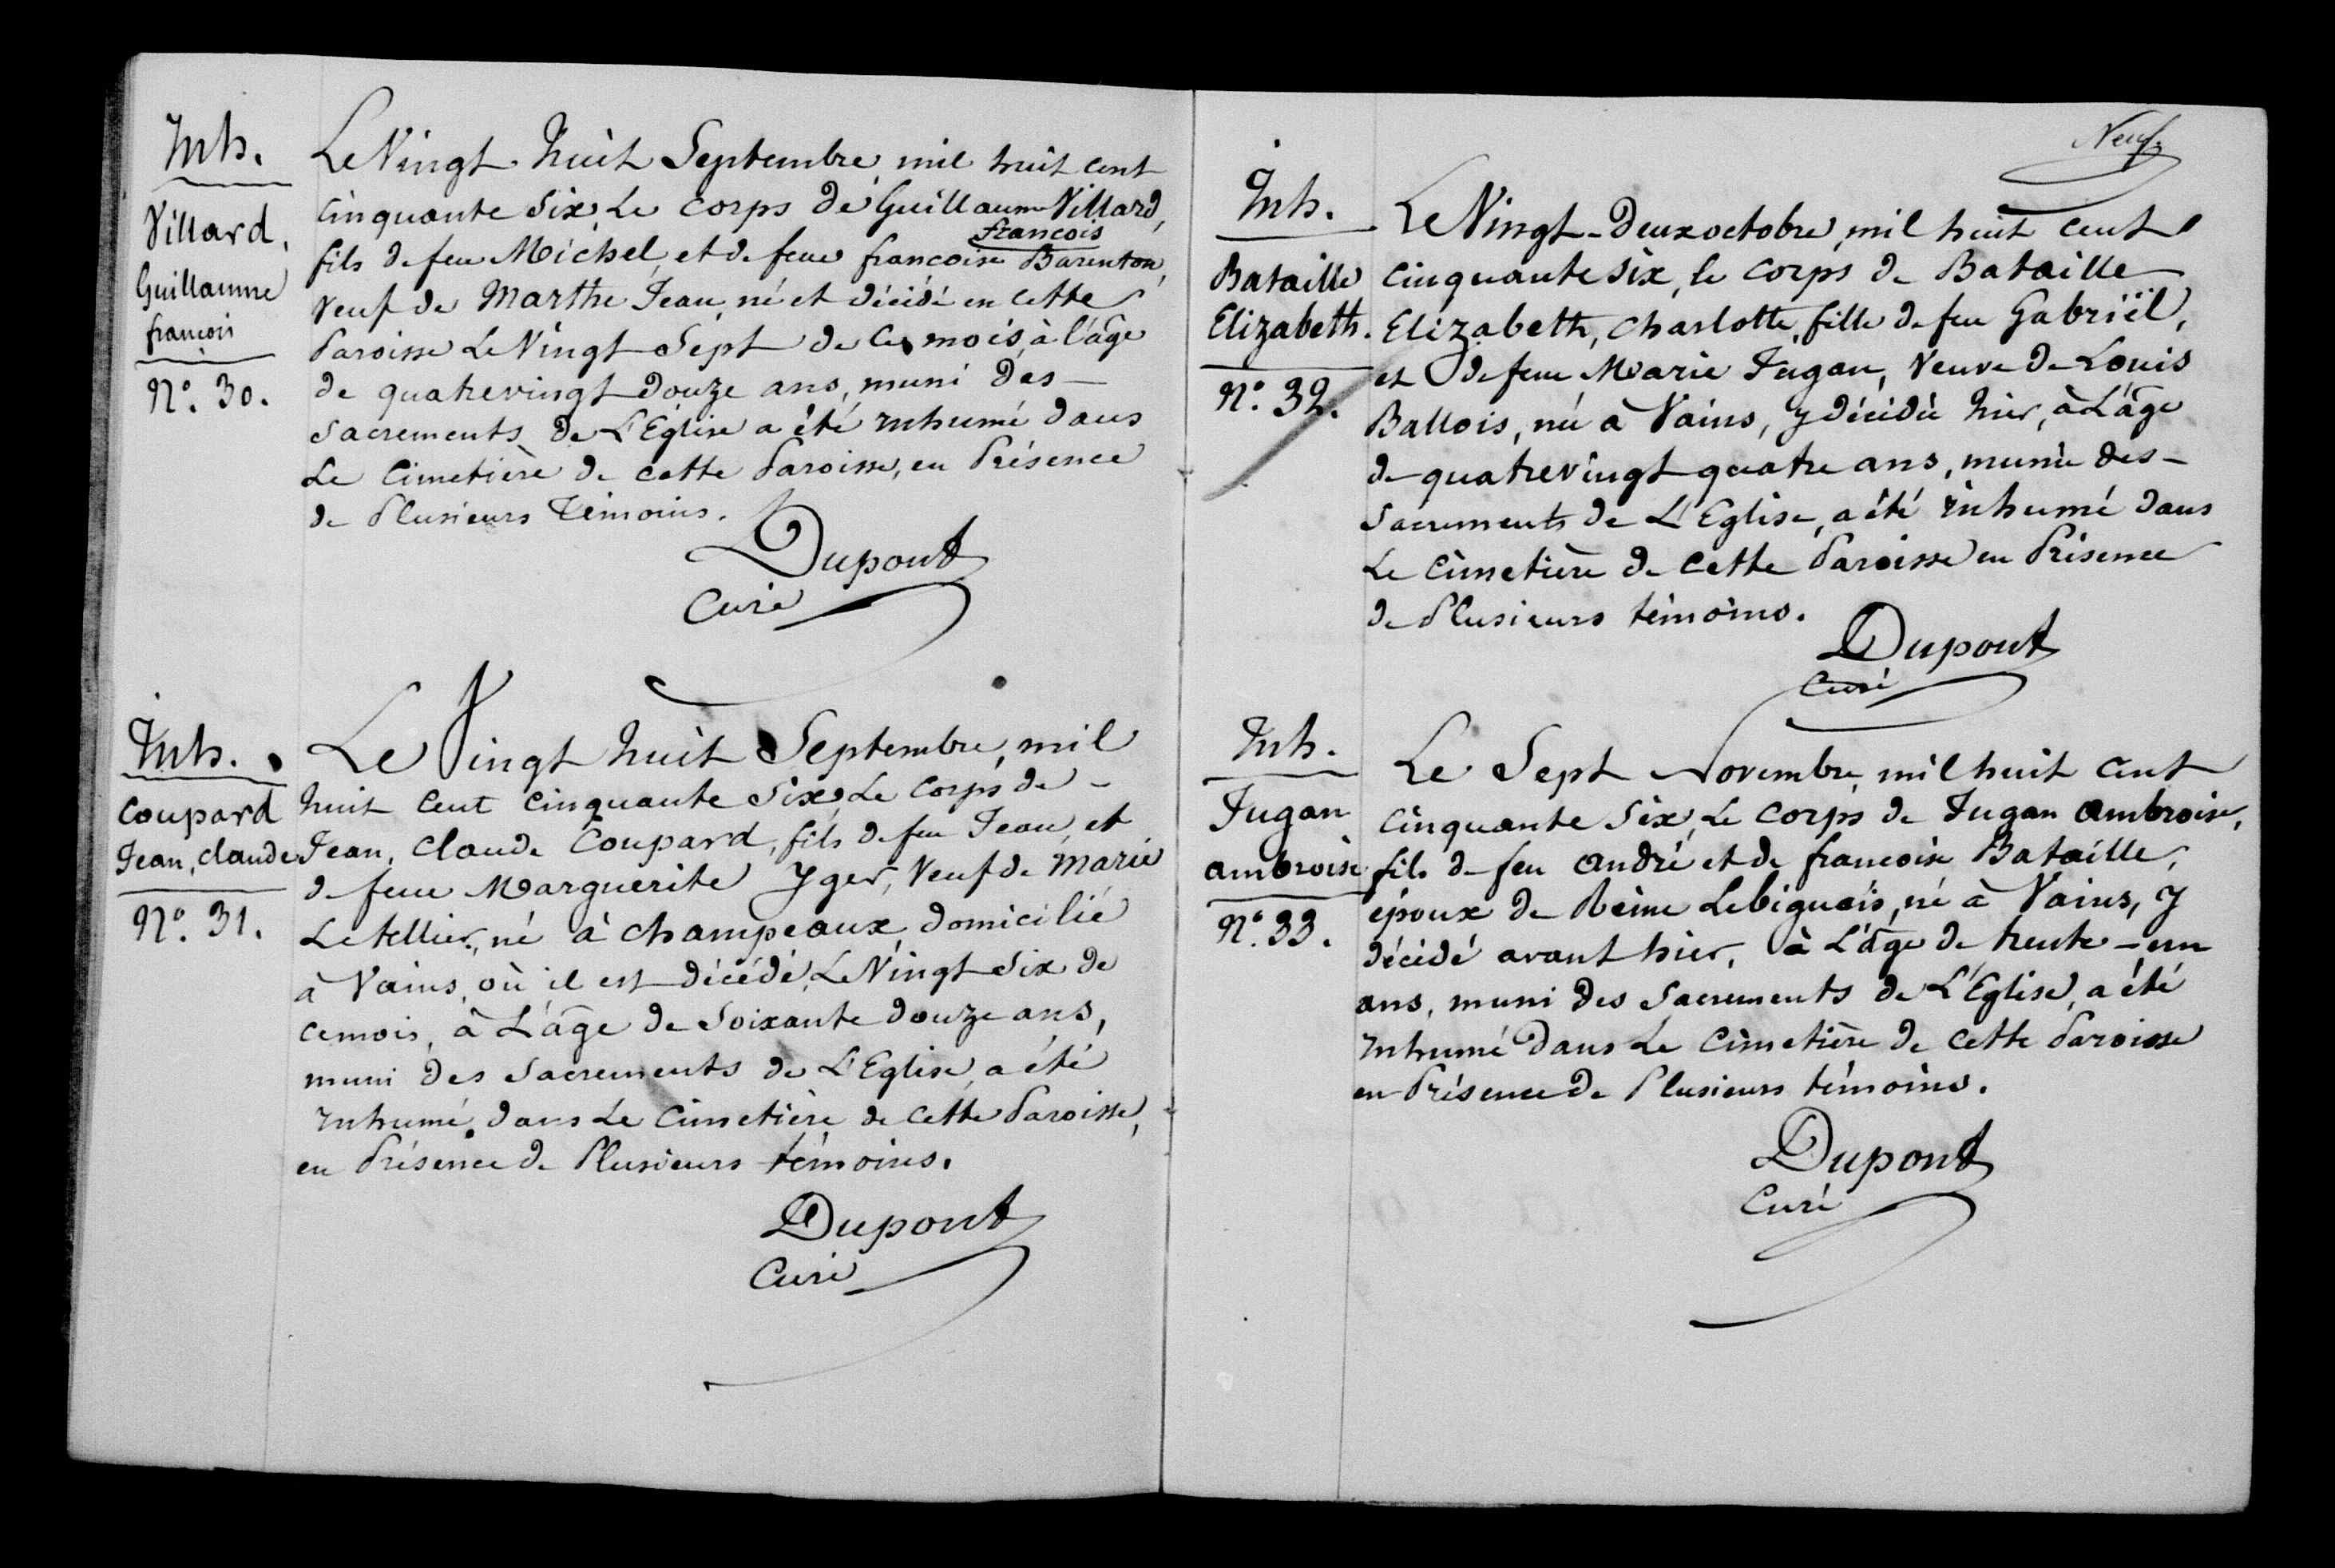 Inh.
Villard,
Guillaume
françois
N°. 30.
Le Vingt huit Septembre, mil huit cent
cinquante Six, Le corps de Guillaume Villard,
francois
fils de feu Michel, et de feue francoise Barenton,
Veuf de Marthe Jean, né et décédé en cette
Paroisse Le Vingt Sept de ce mois, à l'âge
de quatrevingt douze ans, muni des
Sacrements de L'Eglise a été inhumé dans
Le Cimetière de cette Paroisse, en Présence
de Plusieurs Témoins.
Dupont
Curé
Inh.
Coupard
Jean, Claude
N°. 31.
Le Vingt huit Septembre, mil
huit cent cinquante Six, Le Corps de
Jean, Claude Coupard, fils de feu Jean, et
de feue Marguerite Yger, Veuf de Marie
Letellier, né à Champeaux domicilié
à Vains, où il est décédé, Le Vingt Six de
ce mois, à L'âge de Soixante douze ans,
muni des Sacrements de L'Eglise, a été
inhumé dans Le Cimetière de cette Paroisse,
en Présence de Plusieurs témoins.
Dupont
Curé
Neuf.
Inh.
Bataille
Elizabeth.
N°. 32.
Le Vingt-Deux octobre, mil huit cent
cinquante six, le corps de Bataille
Elizabeth, Charlotte, fille de feu Gabriël,
et de feue Marie Jugan, Veuve de Louis
Ballois, née à Vains, y décédée hier, à L'âge
de quatrevingt quatre ans, munie des
Sacrements de L'Eglise, a été inhumé dans
Le Cimetière de cette Paroisse en Présence
de Plusieurs témoins.
Dupont
Curé
Inh.
Jugan
ambroise
N°. 33.
Le Sept Novembre, mil huit cent
cinquante Six, Le Corps de Jugan ambroise,
fils de feu andré et de francoise Bataille,
époux de Reine Lebiguais, né à Vains, y
décédé avant hier, à L'âge de trente-un
ans, muni des Sacrements de L'Eglise, a été
inhumé dans Le Cimetière de cette Paroisse
en Présence de Plusieurs témoins.
Dupont
Curé